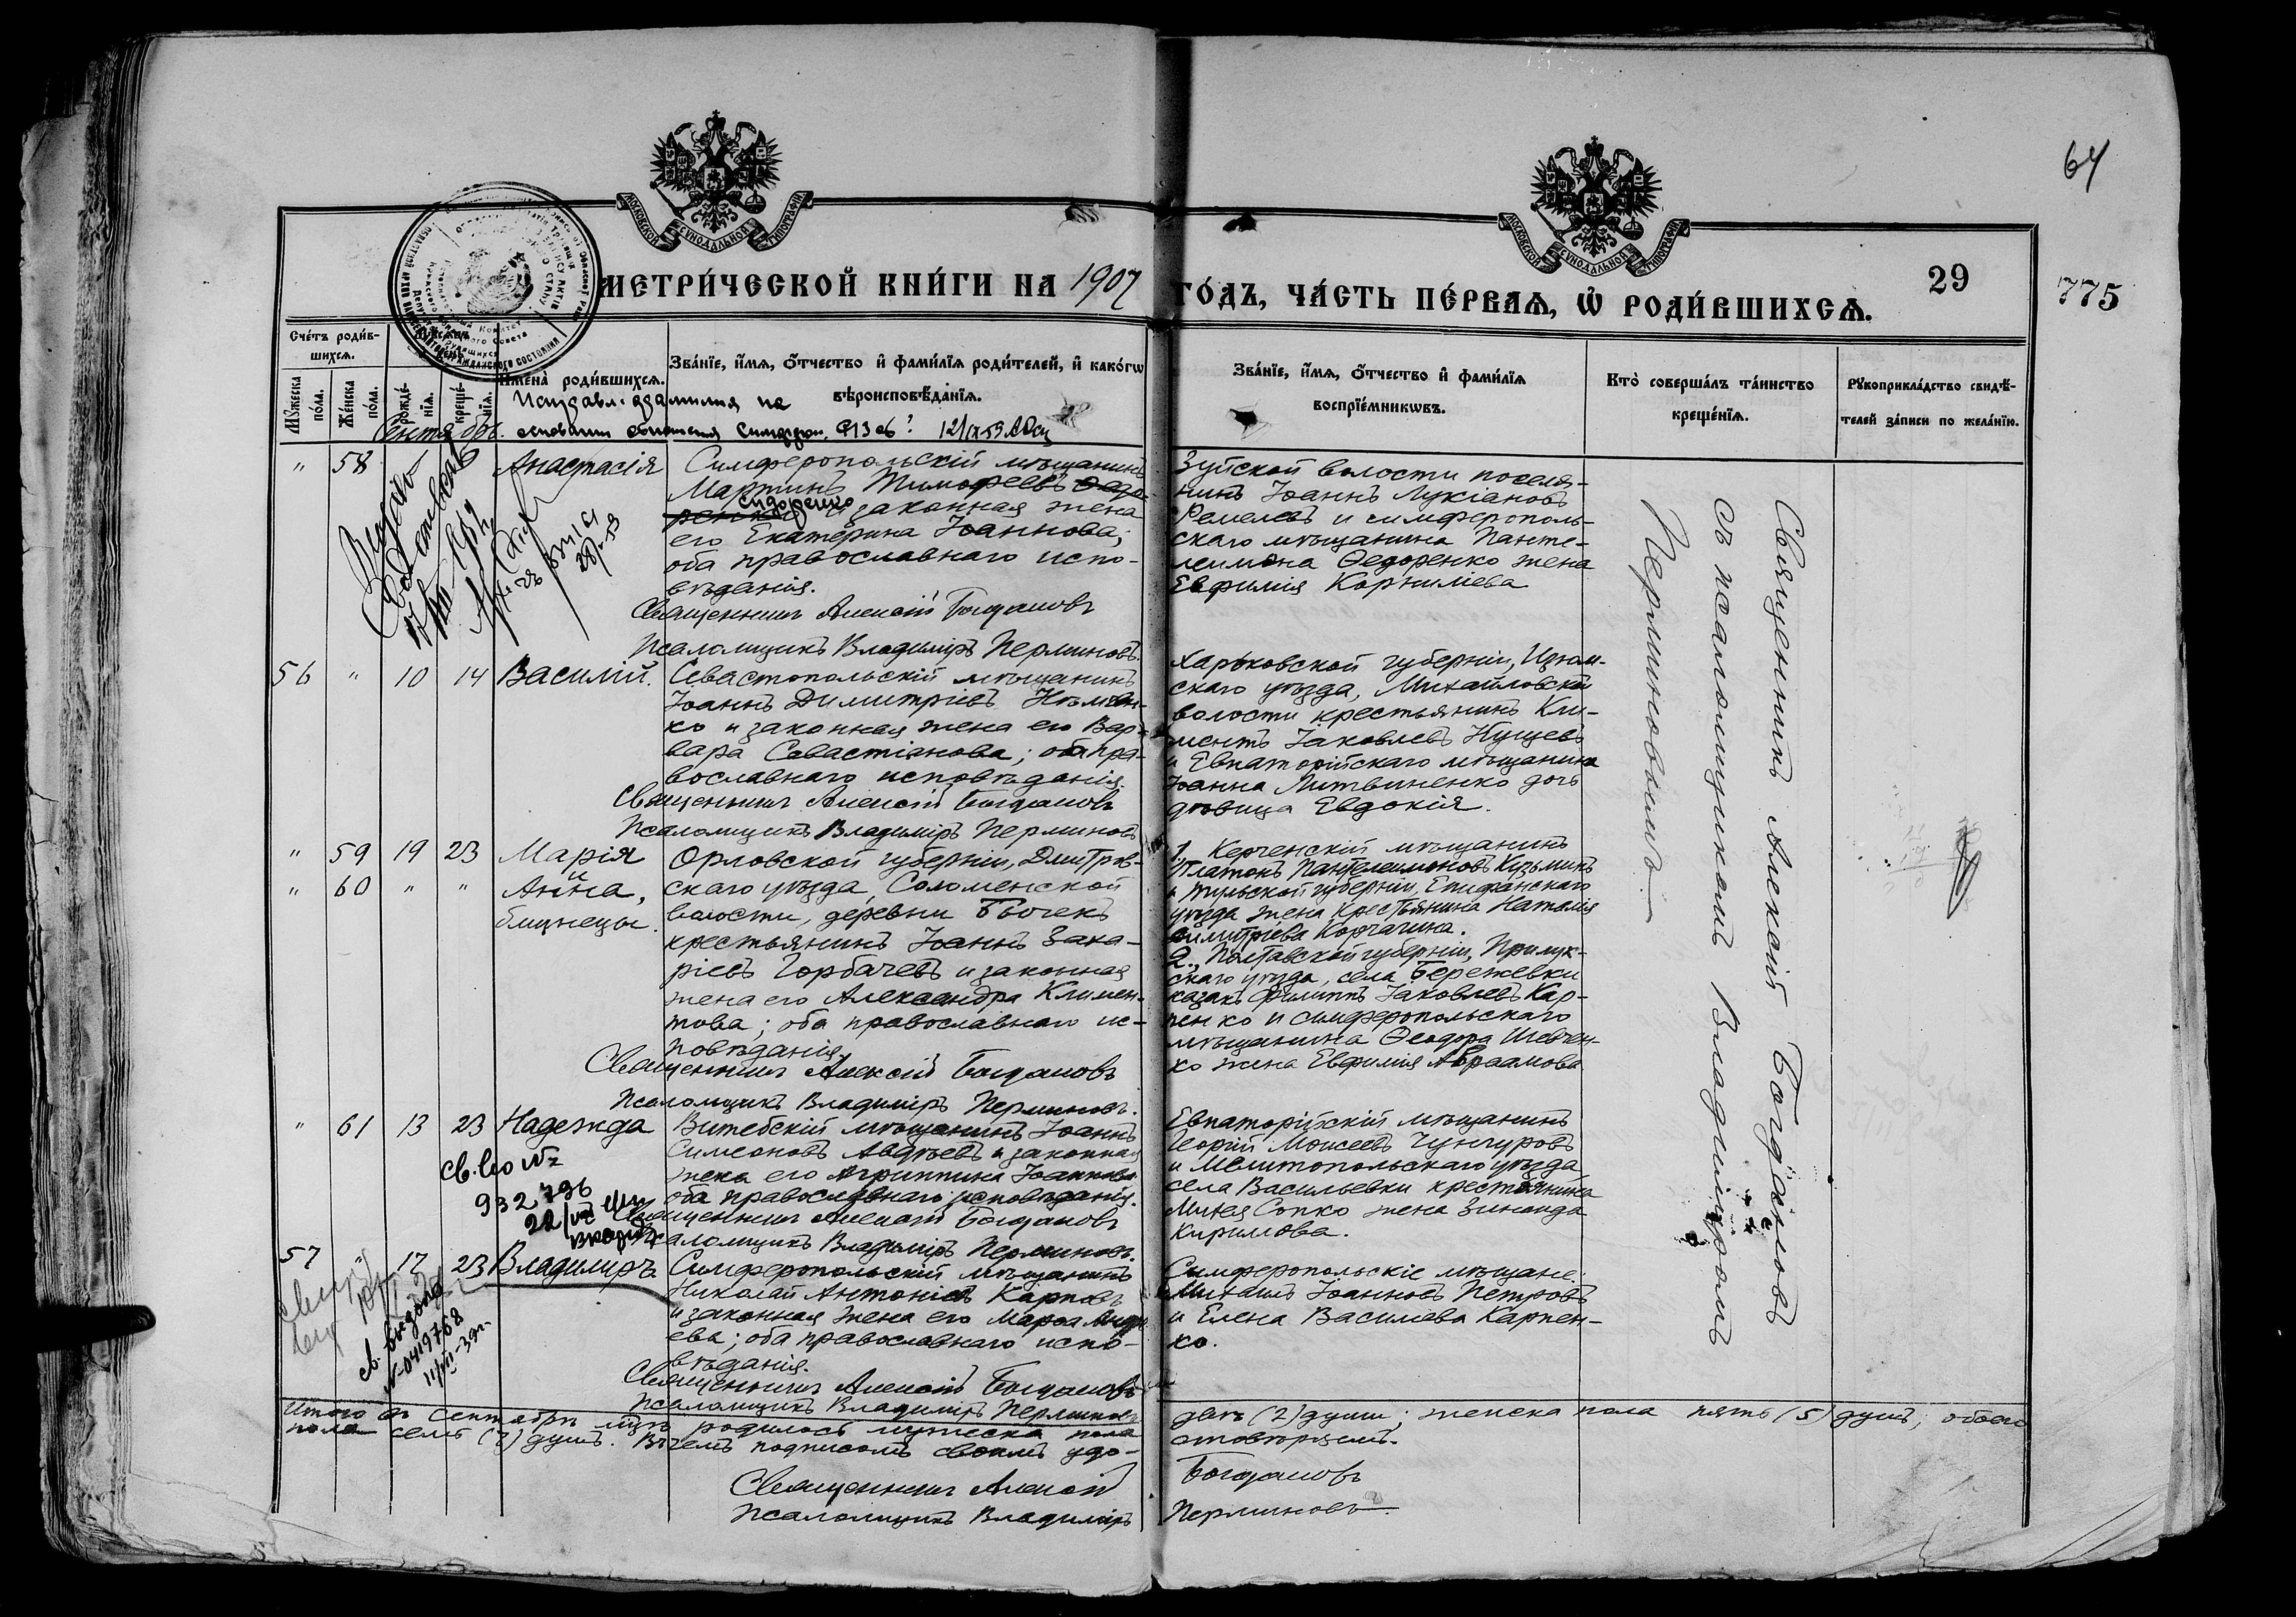 64
МОСКОВСКОЙ СѴНОДАЛЬНОЙ ТИПОГРАФІИ
МОСКОВСКОЙ СѴНОДАЛЬНОЙ ТИПОГРАФІИ
МЕТРИ́ЧЕСКОЙ КНИ́ГИ НА 1907 ГО́ДЪ, ЧА́СТЬ ПЕ́РВАѦ, Ѡ РОДИ́ВШИХСѦ.
29
775
Сче́тъ роди́вшихсѧ.
Мꙋ́жеска по́ла.
Же́нска по́ла.
рожде́нїѧ.
креще́нїѧ.
Имена̀ роди́вшихсѧ.
Зва́нїе, и́мѧ, ѻ́тчество и҆ фами́лїѧ роди́телей, и҆ како́гѡ вѣроисповѣ́данїѧ.
Зва́нїе, и́мѧ, ѻ́тчество и҆ фами́лїѧ воспрїе́мникѡвъ.
Кто̀ соверша́лъ та́инство креще́нїѧ.
Рꙋкоприкла́дство свидѣ́телей за́писи по жела́нїю.
Сентябрь.
Исправл. фамилия на
основании
" 58 Анастасія
Симферопольскій мѣщанинъ
Мартинъ Тимофеевъ Федо-
ренко Сидоренко и законная жена
его Екатерина Іоаннова;
оба православнаго испо-
вѣданія.
Священникъ Алексій Богдановъ
Псаломщикъ Владиміръ Перминовъ.
Зуйской волости поселя-
нинъ Іоаннъ Лукіановъ
Ремелевъ и симферополь-
скаго мѣщанина Панте-
леимона Ѳедоренко жена
Евфимія Корниліева
56 " 10 14 Василій.
Севастопольскій мѣщанинъ
Іоаннъ Димитріевъ Нѣмѣн-
ко и законная жена его Вар-
вара Севастіанова; оба пра-
вославнаго исповѣданія.
Священникъ Алексій Богдановъ
Псаломщикъ Владиміръ Перминовъ
Харьковской губерніи, Изюм-
скаго уѣзда, Михайловской
волости крестьянинъ Кли-
ментъ Іаковлевъ Кущевъ
и Евпаторійскаго мѣщанина
Іоанна Литвиненко дочь
дѣвица Евдокія.
" 59 19 23 Марія
" 60 " " Анна,
близнецы.
Орловской губерніи, Дмитров-
скаго уѣзда, Соломенской
волости, деревни Бычекъ
крестьянинъ Іоаннъ Заха-
ріевъ Горбачевъ и законная
жена его Александра Климен-
това; оба православнаго ис-
повѣданія.
Священникъ Алексій Богдановъ
Псаломщикъ Владиміръ Перминовъ.
1. Керченскій мѣщанинъ
Платонъ Пантелеимоновъ Кузьминъ
и Тульской губерніи, Епифанскаго
уѣзда жена крестьянина Наталія
Димитріева Корчагина.
2. Полтавской губерніи, Прилук-
скаго уѣзда, села Бережевки
казакъ Филиппъ Іаковлевъ Кар-
пенко и симферопольскаго
мѣщанина Ѳеодора Шевчен-
ко жена Евфимія Авраамова
" 61 13 23 Надежда
св. во №
932796
Витебскій мѣщанинъ Іоаннъ
Симеоновъ Авдѣевъ и законная
жена его Агриппина Іоаннова
оба православнаго исповѣданія.
Священникъ Алексій Богдановъ
Псаломщикъ Владиміръ Перминовъ.
Евпаторійскій мѣщанинъ
Георгій Моисеевъ Чунчуровъ
и Мелитопольскаго уѣзда
села Васильевки крестьянина
Митея Сопко жена Зинаида
Кирилова.
57 " 17 23 Владиміръ
св. выдано
№-0419768
11/VII-39г.
Симферопольскій мѣщанинъ
Николай Антоніевъ Карповъ
и законная жена его Марѳа Андре-
ева; оба православнаго испо-
вѣданія.
Священникъ Алексій Богдановъ
Псаломщикъ Владиміръ Перминовъ
Симферопольскіе мѣщане:
Михаилъ Іоанновъ Петровъ
и Елена Василіева Карпен-
ко.
Священникъ Алексій Богдановъ
съ псаломщикомъ Владиміромъ
Перминовымъ
Итого въ Сентябрѣ мцѣ родилось мужеска пола двѣ (2) души; женска пола пять (5) душъ, обоего
пола семь (7) душъ. В чемъ подписомъ своимъ удо-
стовѣряемъ.
Священникъ Алексій Богдановъ
Псаломщикъ Владиміръ Перминовъ.